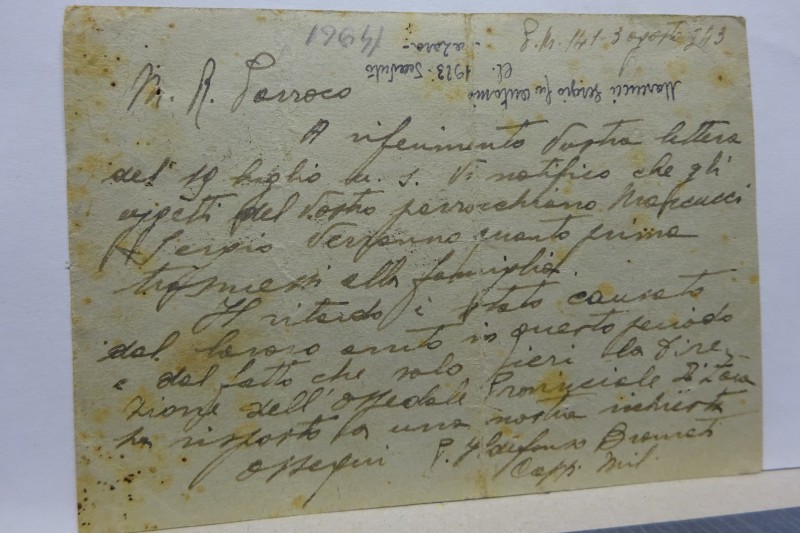 P. M. 141 - 3 agosto 943
14961
Marcucci Sergio fu Antonio
cl. 1923. Deceduto
a Zara -
M. R. Parroco
A riferimento Vostra lettera
del 19 luglio u. s. Vi notifico che gli
oggetti del Vostro parrocchiano Marcucci
Sergio verranno quanto prima
trasmessi alla famiglia.
Il ritardo è stato causato
dal lavoro avuto in questo periodo
e dal fatto che solo ieri la Dire-
zione dell'Ospedale Provinciale di Zara
ha risposto a una nostra richiesta
Ossequi P. Ildefonso
Capp. Mil.